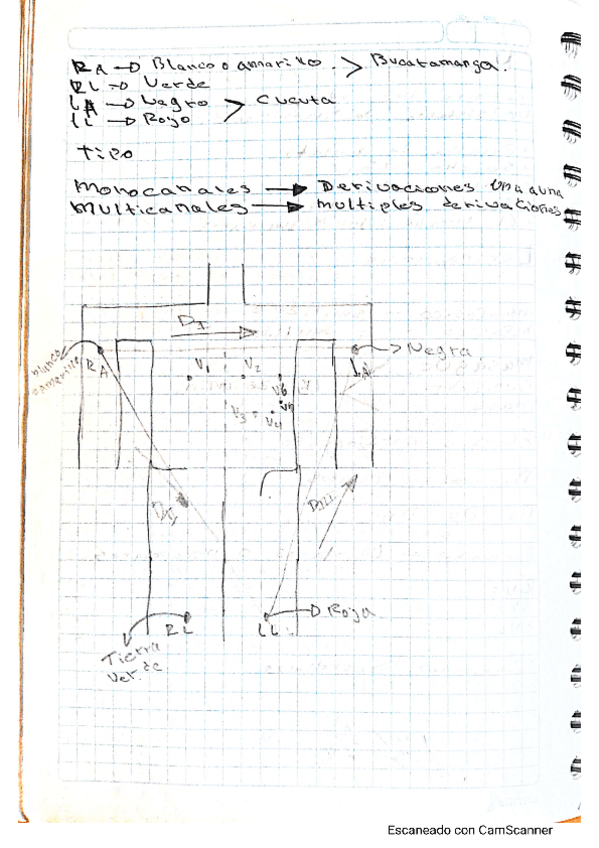 RA → Blanco o amarillo. > Bucaramanga.
RL → Verde
LA → Negro > Cucuta
LL → Rojo
Tipo
Monocanales → Derivaciones una a una
Multicanales → multiples derivaciones
DI
blanco
o amarillo
RA
V1
V2
V3
V4
V5
V6
LA
Negra
DII
DIII
RL
Tierra
Verde
LL
Roja
Escaneado con CamScanner